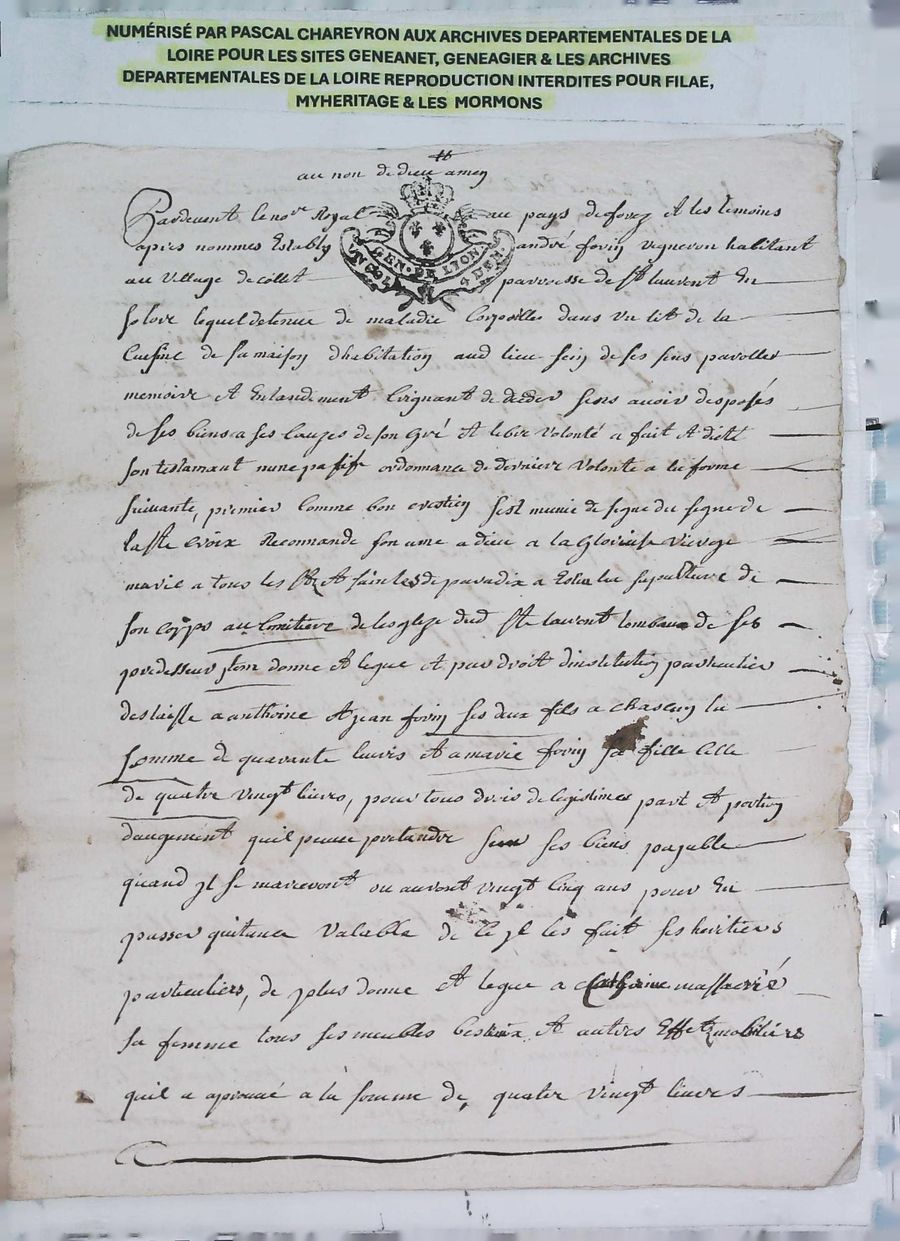 NUMÉRISÉ PAR PASCAL CHAREYRON AUX ARCHIVES DEPARTEMENTALES DE LA
LOIRE POUR LES SITES GENEANET, GENEAGIER & LES ARCHIVES
DEPARTEMENTALES DE LA LOIRE REPRODUCTION INTERDITES POUR FILAE,
MYHERITAGE & LES MORMONS
au non de dieu amen
Pardevent le nore Royal au pays de forez et les temoins
apres nommes Estably andré forin vigneron habitant
GEN. DE LYON.
UN SOL 4 DEN.
au village de collet parroesse de st laurent En
solore lequel detenue de maladie Corporelles dans un lit de la
Cuisine de sa maison d'habitation aud lieu sein de ses sens parolles
memoire et Entandement Creignant de deceder sens auoir desposés
de ses biens a ses Causes de son Gré et libre volonté a fait et dicté
son testamant nuncupatif ordonnance de derniere volonte a la forme
suiuante, premier comme bon crestien s'est munie de signe du signe de
la ste Croix Recommande son ame a dieu a la Glorieuse Vierge
marie a tous les sts et saintes de paradix a Eslu la sepulture de
son corps au Cimitiere de les glize dud st laurent tombaux de ses
predesseur, item donne et legue et par droit d'institution particulier
deslaisse a anthoine et jean forin ses deux fils a chascun la
somme de quarante liuvres et a marie forin sa fille Celle
de quatre vingt liures, pour tous drois de legistimes part et portion
daugement quil puisse pretandre sur ses biens payable
quand jl se marieront ou auront vingt cinq ans pour En
passer quitance valable de ce jl les fait ses heritiers
particuliers, de plus donne et legue a Catherine
sa femme tous ses meubles bestiaux et autres Effets mobiliers
quil a aprouué a la somme de, quatre vingt liures